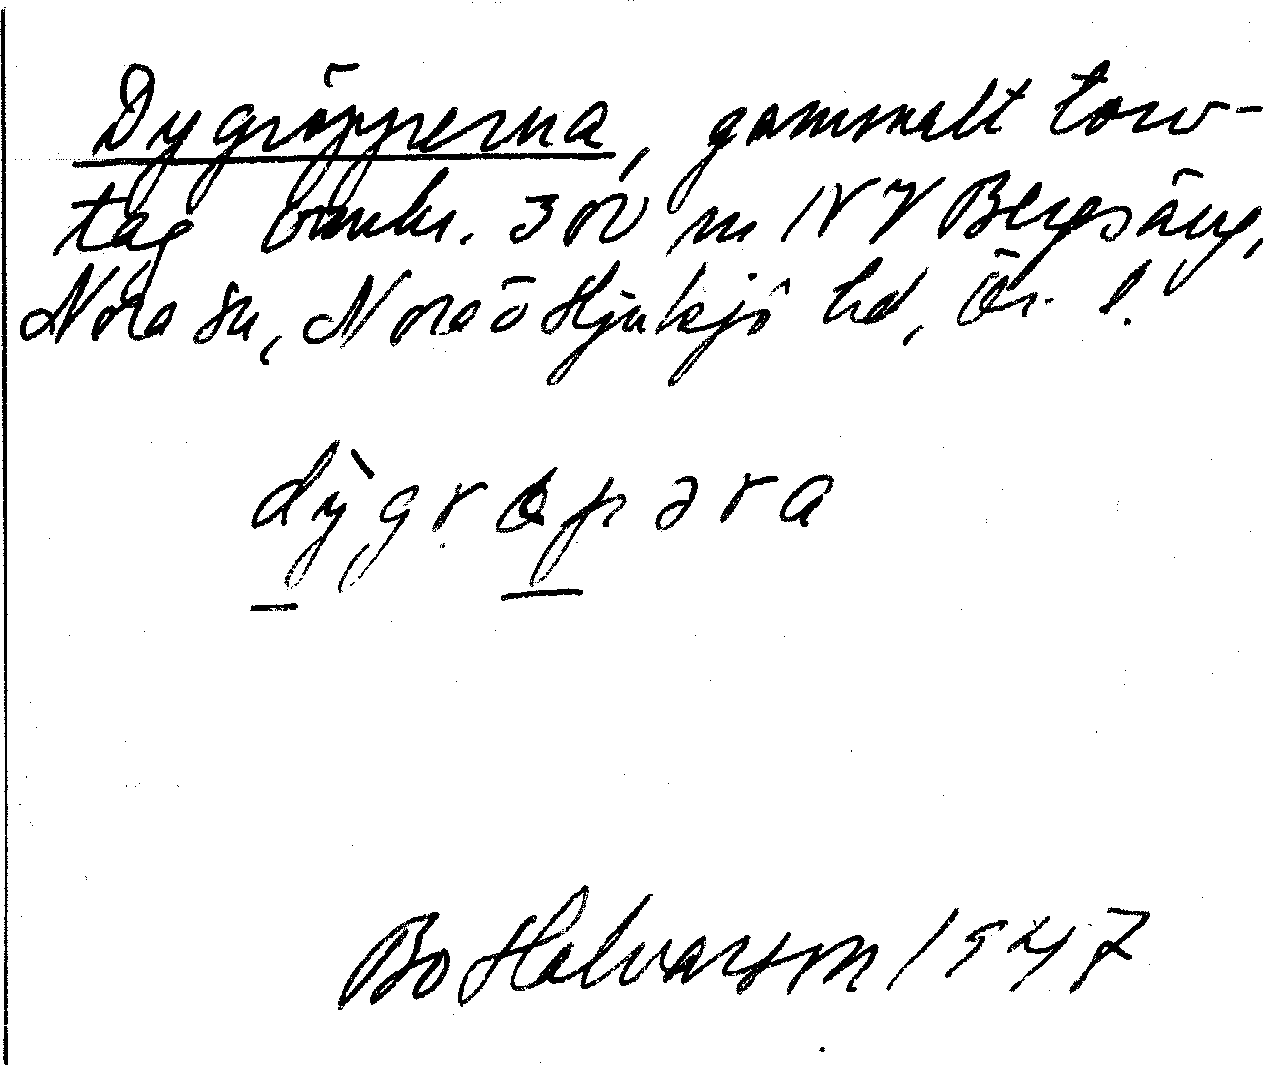 Dygröpperna, gammalt torv-
tag omkr. 300 m NV Bergsäng,
Nora sn, Nora ö Hjulsjö hd, Ör. l.
dỳgrɵpəra
Bo Halvarson 1947